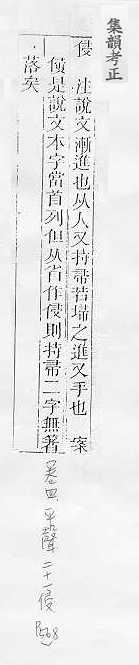 集韻考正
侵　注說文漸進也从人又持帚若埽之進又手也　案
㑴是說文本字當首列但从省作侵則持帚二字無著
落矣
卷四 平聲 二十一侵